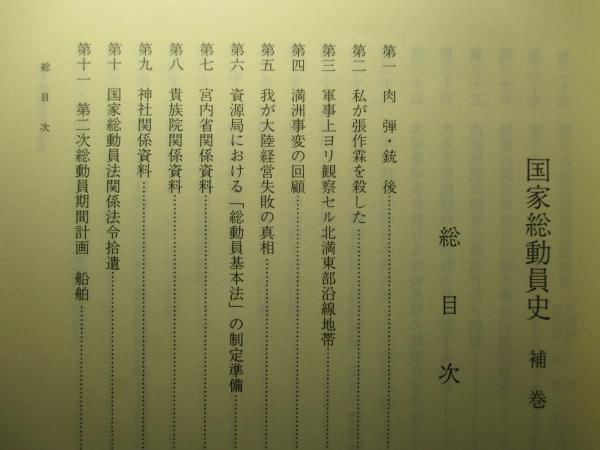 国家総動員史 補巻
総目次
第一 肉弾・銃後……
第二 私が張作霖を殺した……
第三 軍事上ヨリ観察セル北満東部沿線地帯……
第四 満洲事変の回顧……
第五 我が大陸経営失敗の真相……
第六 資源局における「総動員基本法」の制定準備……
第七 宮内省関係資料……
第八 貴族院関係資料……
第九 神社関係資料……
第十 国家総動員法関係法令拾遺……
第十一 第二次総動員期間計画 船舶……
総目次